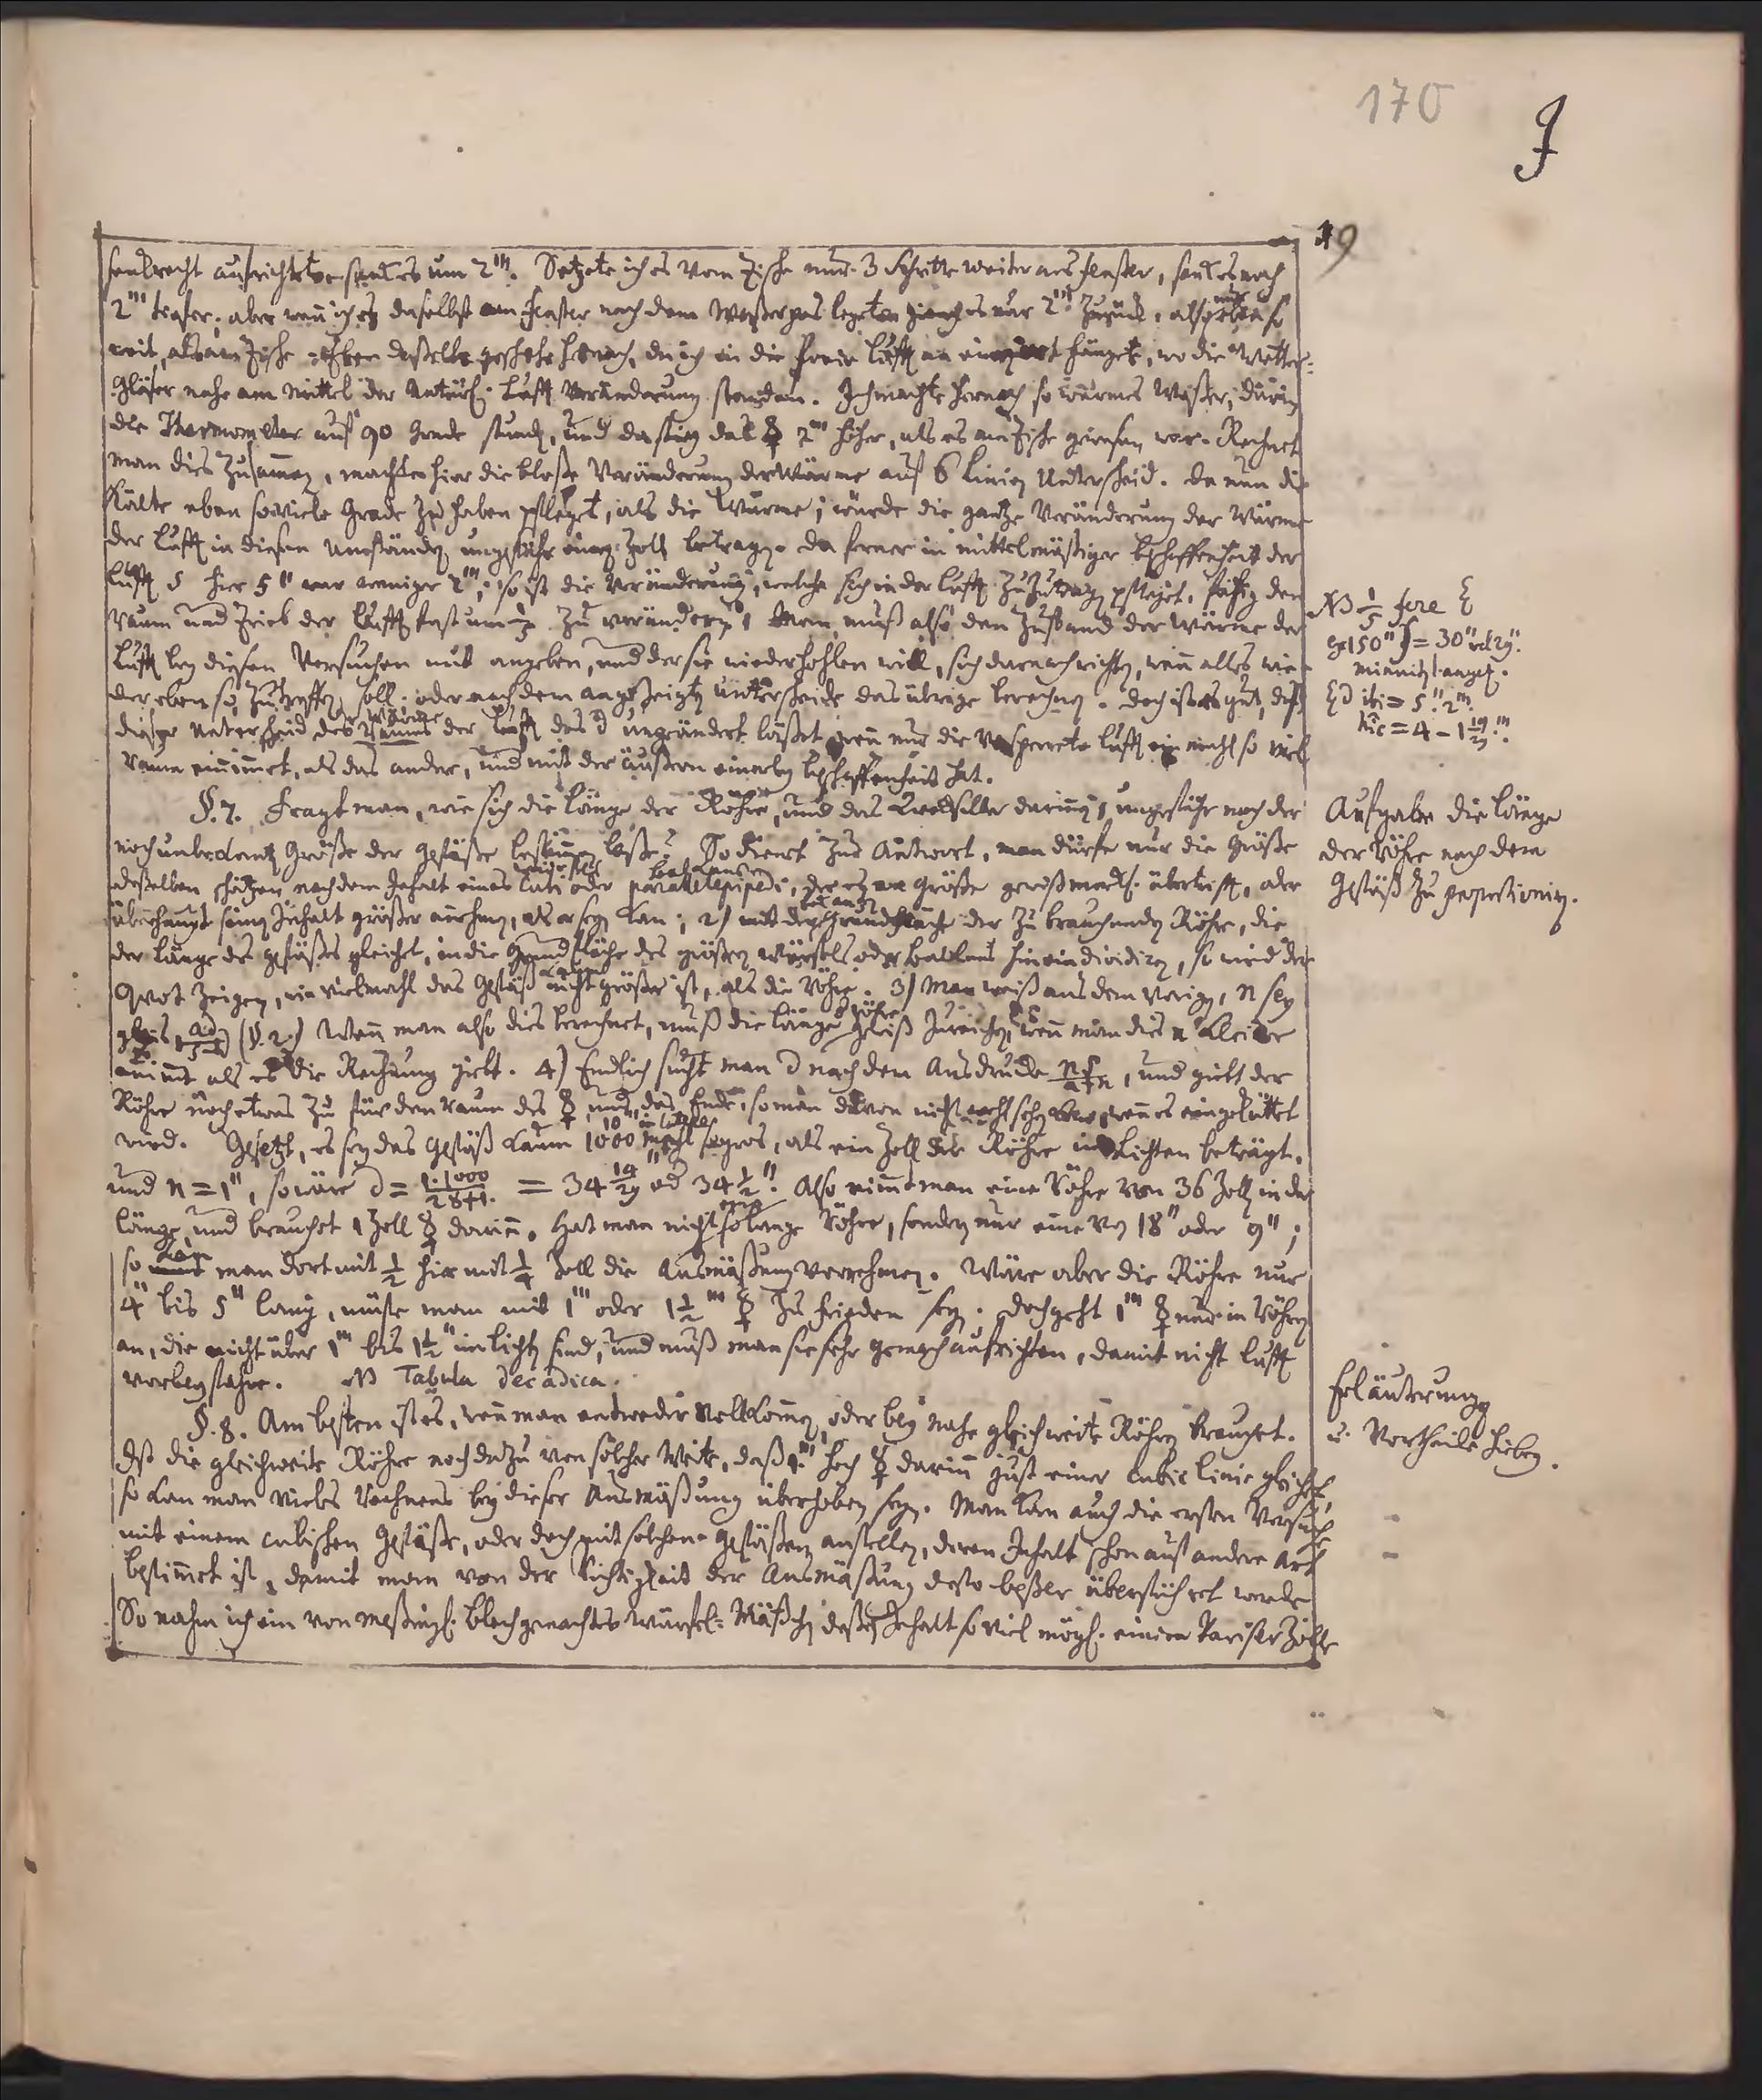 170
9
19
senkrecht aufrichtete sank es um 2'''. Setzete ich es vom Tische nur 3 Schritte weiter ans Fenster, sank es noch
2''' tiefer; aber wenn ich es daselbst am Fenster nach dem Waßerpas legete gieng es nur 2''' zurück, also eben so
weit, als am Tische. Eben daßelbe geschahe hernach, da ich in die freie Lufft an einen Ort hängete, wo die Wetter-
Gläser nahe am Mittel der natürl. Lufft Veränderung standen. Ich machte hernach so warmes Waßer, darin
die Thermometer auf 90 Grade stund, und da stieg das ☿ 2''' höher, als es am Tische gewesen war. Rechnet
man dies zusammen, machte hier die bloße Veränderung der Wärme auf 6 Linien Unterscheid. Da nun die
Kälte eben so viele Grade zu haben pfleget, als die Wärme; würde die gantze Veränderung der Wärme
der Lufft in diesen Umständen ungefähr einen Zoll betragen. Da ferner in mittelmäßiger Beschaffenheit der
Lufft S hier 5'' war weniger 2'''; so ist die Veränderung, welche sich in der Lufft zuzutragen pfleget, fähig den
Raum und Trieb der Lufft fast um 1/5 zu verändern. Man muß also den Zustand der Wärme der
Lufft bey diesen Versuchen mit angeben, und der sie wiederhohlen will, sich darnach richten, wenn alles wie-
der eben so zutreffen soll: oder nach dem angezeigten Unterscheide das übrige berechnen. Doch ist es gut, daß
dieser Unterscheid der Wärme der Lufft das d ungeändert läßet, wenn nur die versperrete Lufft ein mahl so viel
Raum einnimmt, als das ander, und mit der äußern einerley Beschaffenheit hat.
§. 7. Fragt man, wie sich die Länge der Röhre, und das Quecksilber darinn, ungefähr nach der
noch unbekanten Größe der Gefäße bestimmen laße? So dienet zur Antwort, man dürfe nur die Größe
deßelben schätzen nach dem Inhalt eines Cubi oder parallelepipedi, der es an Größe gewiß merckl. übertrifft, oder
überhaupt seinen Inhalt größer annehmen, als er seyn kan; 2) mit der Grundfläche der zu brauchenden Röhre, die
der Länge des Gefäßes gleichet, in die Grundfläche des großen Würfels oder Balkens hinein dividiren, so wird der
Quot zeigen, wie vielmahl das Gefäß nicht größer ist, als die Röhre. 3) Man weiß aus dem vorigen, n sey
gleich (§. 2.) Wenn man also dies berechnet, muß die Länge der Röhre gewiß zureichen, wenn man dies n kleiner
nimmt als es die Rechnung giebt. 4) Endlich sucht man d nach dem Ausdrucke , und giebt der
Röhre noch etwas zu für den Raum des ☿ und das Ende, so man davon nicht wohl sehen kan, wenn es eingeküttet
wird. Gesetzt, es sey das Gefäß kaum 1000 mahl so gros, als ein Zoll der Röhre im Lichten beträgt,
und n = 1'', so wäre d = 1.1000/28+1. = 34 14/29 od 34 1/2''. Also nimmt man eine Röhre von 36 Zoll in der
Länge, und brauchet 1 Zoll ☿ darinn. Hat man nicht eine so lange Röhre, sondern nur eine von 18'' oder 9'';
so kan man dort mit 1/2 hier mit 1/4 Zoll die Ausmäßung vornehmen. Wäre aber die Röhre nur
4'' bis 5'' lang, müste man mit 1''' oder 1 1/2''' ☿ zu frieden seyn; doch geht 1''' ☿ nur in Röhren
an, die nicht über 1''' bis 1 1/2''' im Lichten sind, und muß man sie sehr gemach aufrichten, damit nicht Lufft
vorbey fahre. NB Tabula decadica.
§. 8. Am besten ist es, wenn man entweder vollkommen oder bey nahe gleichweite Röhren brauchet.
Ist die gleichweite Röhre noch dazu von solcher Weite, daß 1''' hoch ☿ darinn just einer Cubic Linie gleichet,
so kan man vieles Rechnens bey dieser Ausmäßung überhoben seyn. Man kan auch die ersten Versuche
mit einem cubischen Gefäße, oder doch mit solchen Gefäßen anstellen, deren Inhalt schon auf andere Art
bestimmet ist, damit man von der Richtigkeit der Ausmäßung desto beßer überführet werde
So nahm ich ein von meßingn. Blech gemachtes Würfel-Mäßchen, deßen Inhalt so viel mögl. einem Pariser Zolle
NB 1/5 fere
= 30'' vel 29''.
ibi = 5'' 2'''
hic = 4 - 1 19/29'''
Aufgabe die Länge
der Röhre nach dem
Gefäß zu proportionin.
Erläuterung
u. Vortheile hiebey.